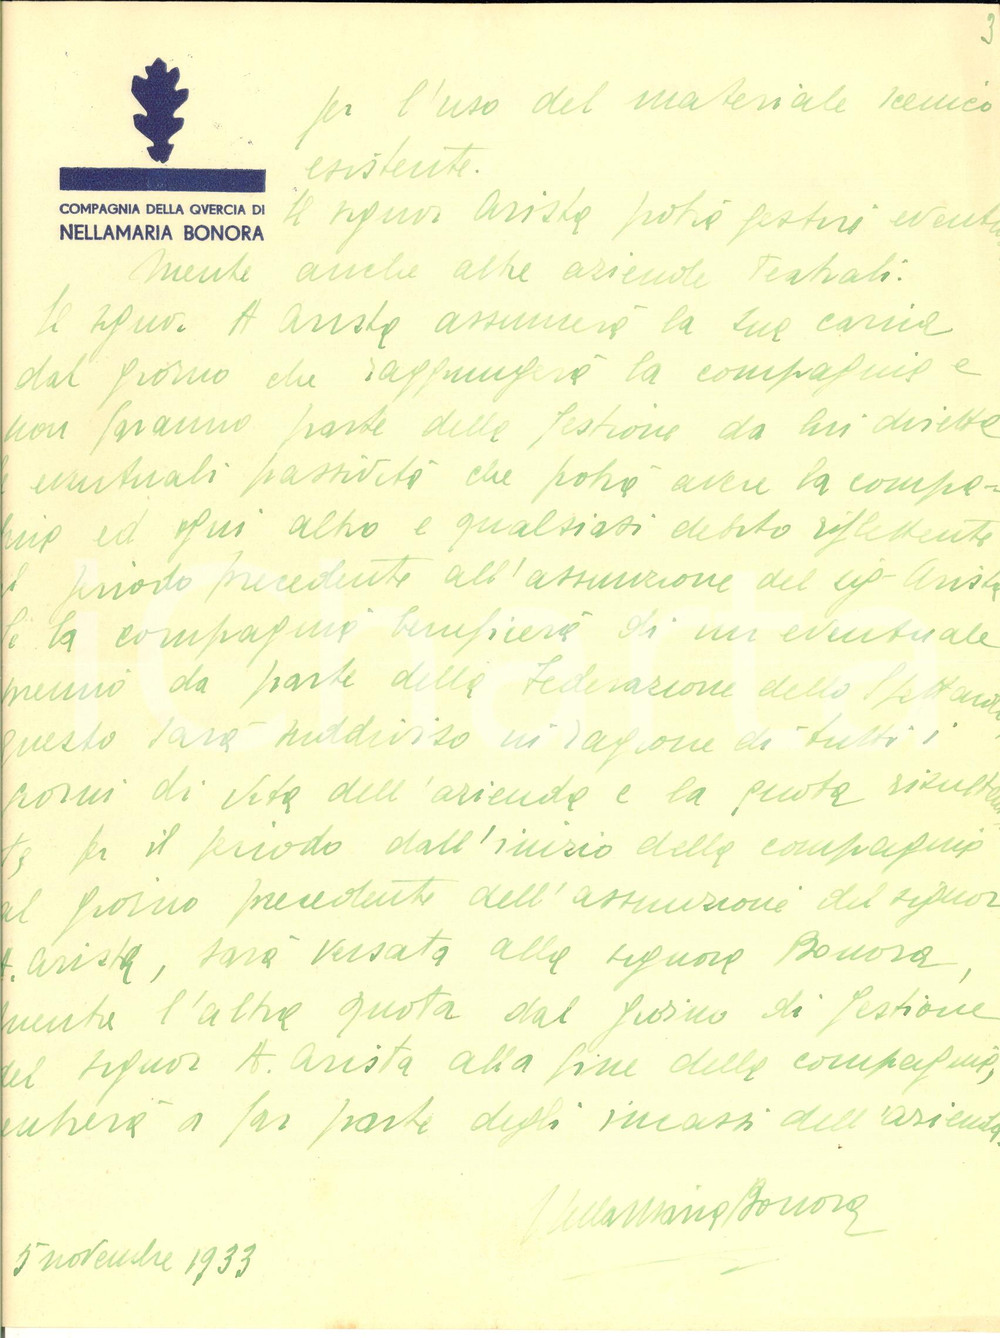 3
per l'uso del materiale scenico
esistente.
COMPAGNIA DELLA QVERCIA DI
NELLAMARIA BONORA
Il signor Arista potrà gestire eventu
mente anche altre aziende Teatrali.
Il signor A Arista assumerà la sua carica
dal giorno che raggiungerà la compagnia e
non faranno parte della gestione da lui diretta
eventuali passività che potrà avere la compa-
gnia ed ogni altro e qualsiasi debito riflettente
il periodo precedente all'assunzione del sig. Arista
Se la compagnia beneficierà di un eventuale
premio da parte della Federazione dello Spettacolo
questo sarà suddiviso in ragione di tutti i
giorni di vita dell'azienda e la quota risultan
ta per il periodo dall'inizio della compagnia
al giorno precedente dell'assunzione del signor
A. Arista, sarà versata alla signora Bonora,
mentre l'altra quota dal giorno di gestione
del signor A. Arista alla fine della compagnia,
entrerà a far parte degli incassi dell'azienda.
NellaMaria Bonora
5 novembre 1933
iCharta